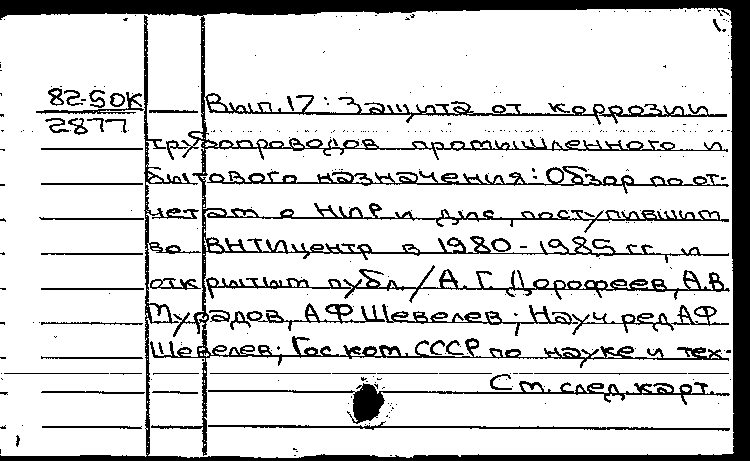 1.
82-50К
2877
Вып. 17: Защита от коррозии
трубопроводов промышленного и
бытового назначения: Обзор по от-
четам о НИР и дис, поступившим
во ВНТИцентр в 1980-1985 гг., и
открытым публ. / А. Г. Дорофеев, А.В.
Мурадов, А.Ф Шевелев; Науч. ред. А.Ф
Шевелев; Гос ком. СССР по науке и тех-
См. след. карт.